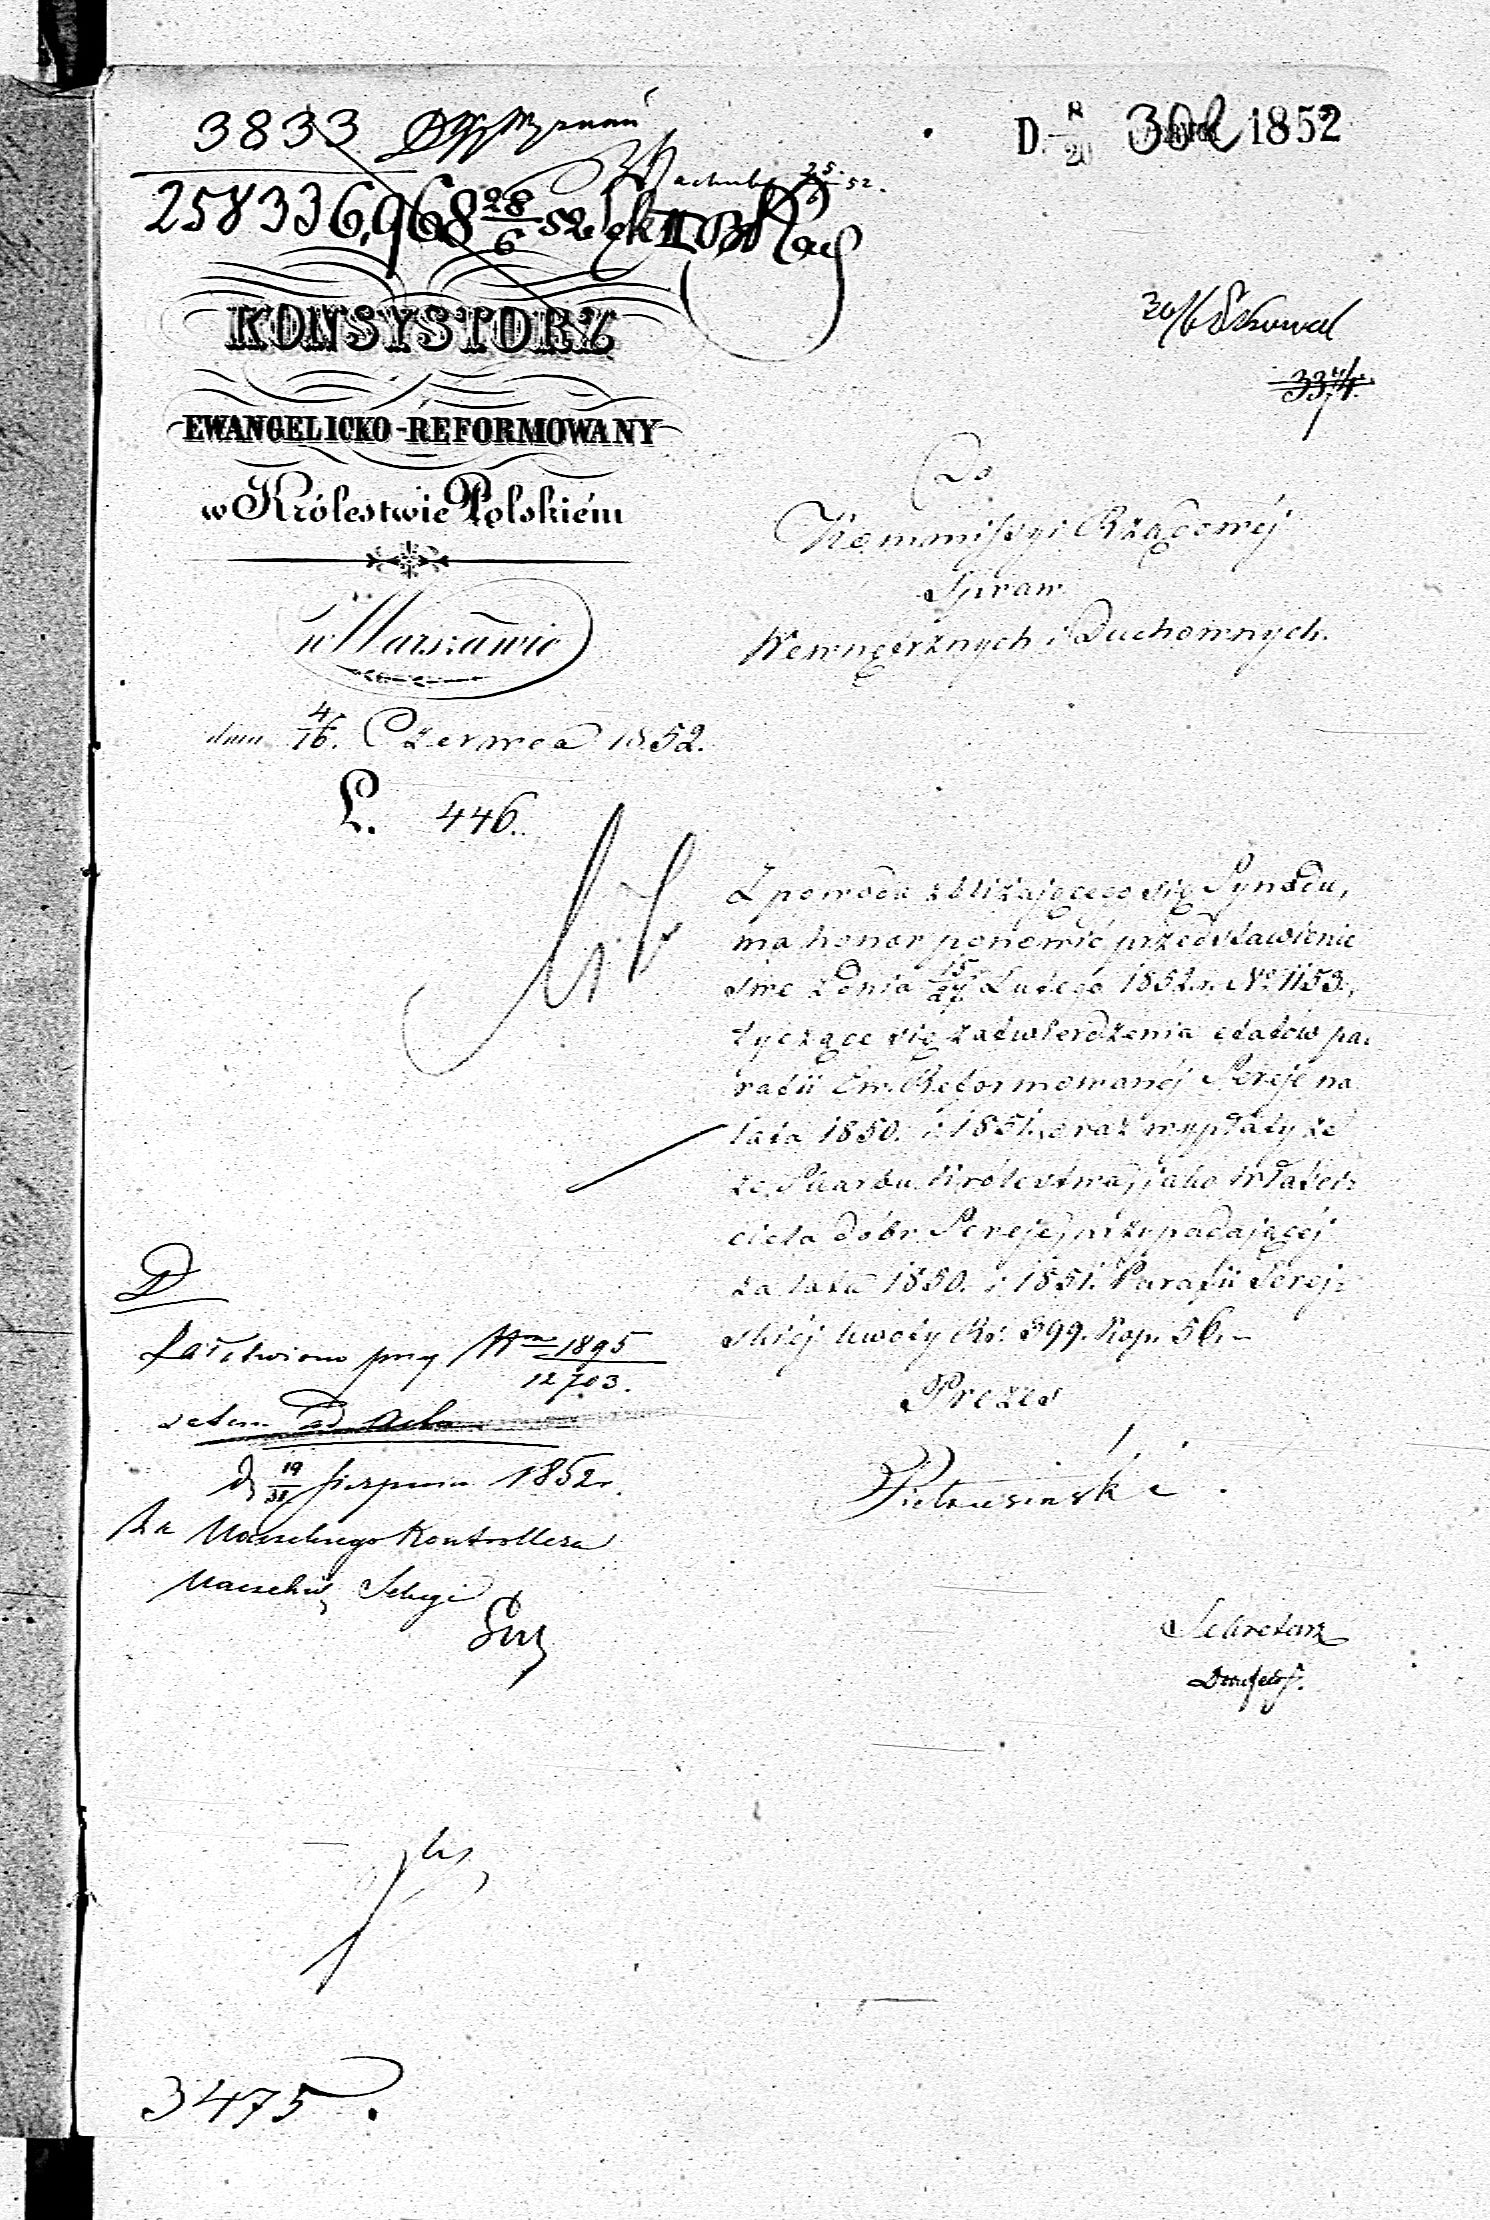 3833
D. 8/20 1852
258336,968 28/6 52
KONSYSTORZ
EWANGELICKO-REFORMOWANY
w Królestwie Polskiém
w Warszawie
dnia 4/16. Czerwca 1852.
L. 446.
Do
Kommissyi Rządowéj
Spraw
Wewnętrznych i Duchownych.
Z powodu zbliżającego się Synodu,
ma honor ponowić przedstawienie
swe z dnia 15/27 Lutego 1852 r. No 1153.,
tyczące się zatwierdzenia etatów pa-
rafii Ew. Reformowanéj Sereje na
lata 1850. i 1851., oraz wypłaty ze
ze Skarbu Królestwa, jako właści-
ciela dóbr Sereje, przypadającéj
za lata 1850. i 1851. Parafii Serej-
skiéj kwoty Rs. 399. Kop. 56.-
Prezes
Pietrusiński.
Sekretarz
D
Załatwiono przy Nrze 1895/12703.
zatem ad acta
d. 19/31 Sierpnia 1852 r.
Za Naczelnego Kontrollera
Naczelnik Sekcyi
3475